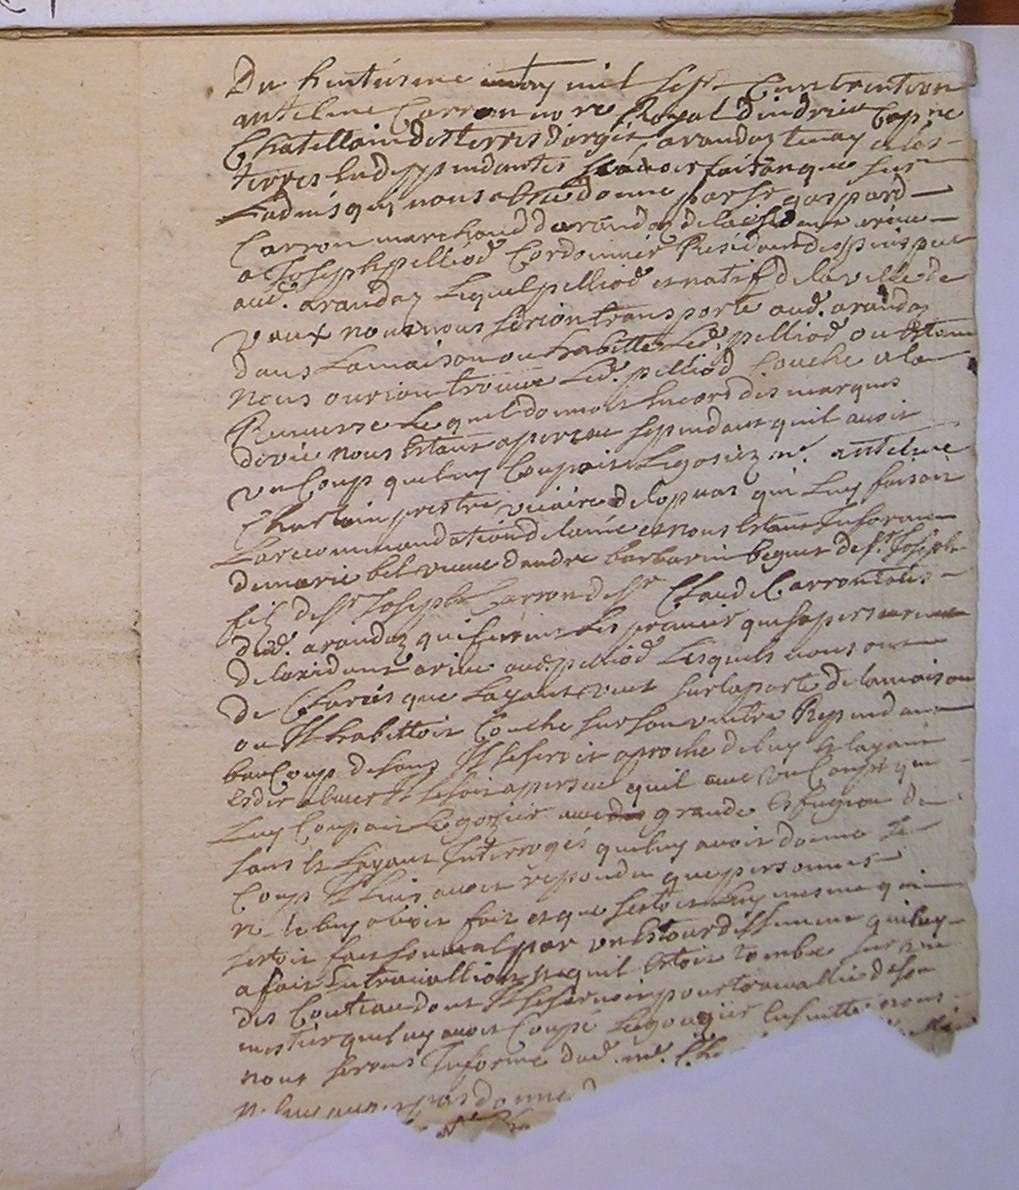 Du huitiesme may mil sept Cent trente trois
antelme Carron nore Royal d'indrieu Cap ne
Chatellain des terres d'argis arandaz tenay et les
terres En deppendantes scavoir faisons que sur
Ladvis quy nous a Esté donné par sr gaspard
Carron marchand d'arandaz de laxidant arivé
a Joseph pelliod Cordonnier Residant depuis peu
aud. arandaz Lequel pelliod est natif de la ville de
vaux nous nous serion transporte aud. arandaz
dans La maison ou habitte Led. pelliod ou Estant
nous aurions trouvé Led. pelliod Couche a la
Renverse Lequel donnoit Encord des marques
de vie nous Estant aperceu sependant quil avoit
un Coup que luy Coupoit Le gosiez mr. antelme
Chastain prestre vicaire dud. qui Luy faisoit
La recommandation de lame et nous Estant Informe
de marie bel veuve d'andre barbarin beguet de sr. Joseph
fils de sr Joseph Carron de sr Claude Carron tous
dud. arandaz qui furent Les premier que saperseurent
de laxidant arivé aud. pelliod Lesquels nous ont
declarés que Layant veut sur la porte de la maison
ou Il habittoit Couche sur son ventre Rependant
beaucoup de sang Il se seroit aproche de luy Et layant
Luy Coupoit Le gozier avec grande Effugion de
sang Et Layant Interrogés que luy avoit donne Le
Coup Il luis avoit repondu que personne
ne le luy avoit fait et que sestoit Luy mesme qui
sestoit fait son mal par un Estourdissement qui luy
a fait En travaillier et quil Estoit tombé sur un
des Couteau dont Il se servoit pour travallie de son
mestier que luy avoit Coupé Le gougier Ensuitte nous
nous serons Informé dud. mr. Ch
donné